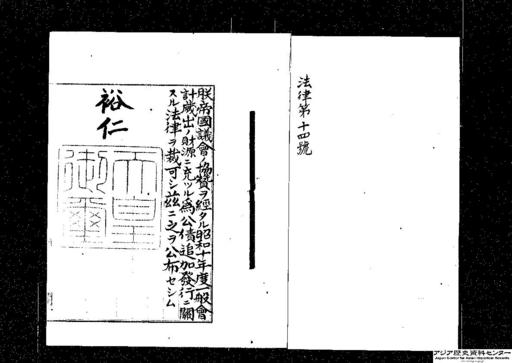 法律第十四號
朕帝國議會ノ協贊ヲ經タル昭和十年度一般會
計歲出ノ財源ニ充ツル爲公債追加發行ニ關
スル法律ヲ裁可シ茲ニ之ヲ公布セシム
裕仁
天皇
御璽
アジア歴史資料センター
Japan Center for Asian Historical Records